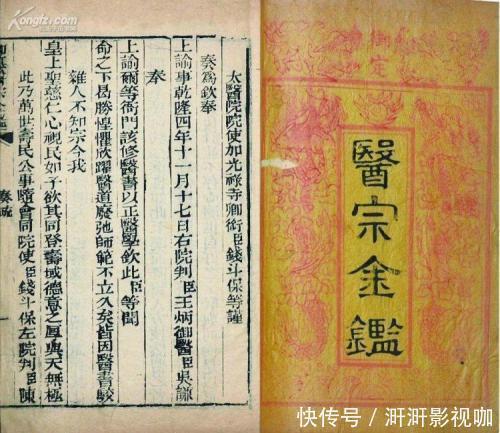 御定
醫宗金鑑
太醫院院使加光祿寺卿銜臣錢斗保等謹
奏爲欽奉
上諭事乾隆四年十一月十七日右院判臣王炳御醫臣吳謙
奉
上諭爾等衙門該修醫書以正醫學欽此臣等聞
命之下曷勝惶懼欣躍醫道廢弛師範不立久矣皆因醫書駁
雜人不知宗今我
皇上聖慈仁心視民如子欲其同登壽域德意之厚與天無極
此乃萬世壽民公事隨會同院使臣錢斗保左院判臣陳
奏疏
快传号／影视咖